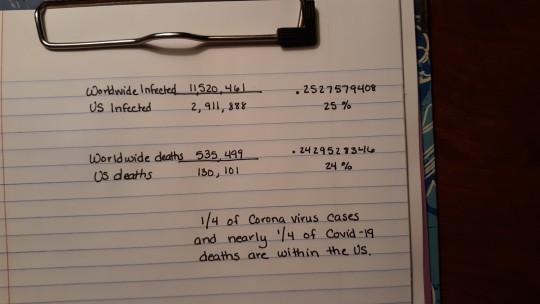 Worldwide Infected 11,520,461 .2527579408
US Infected 2,911,888 25%
Worldwide deaths 535,499 .2429528346
US deaths 130,101 24%
1/4 of Corona virus cases
and nearly 1/4 of Covid-19
deaths are within the US.